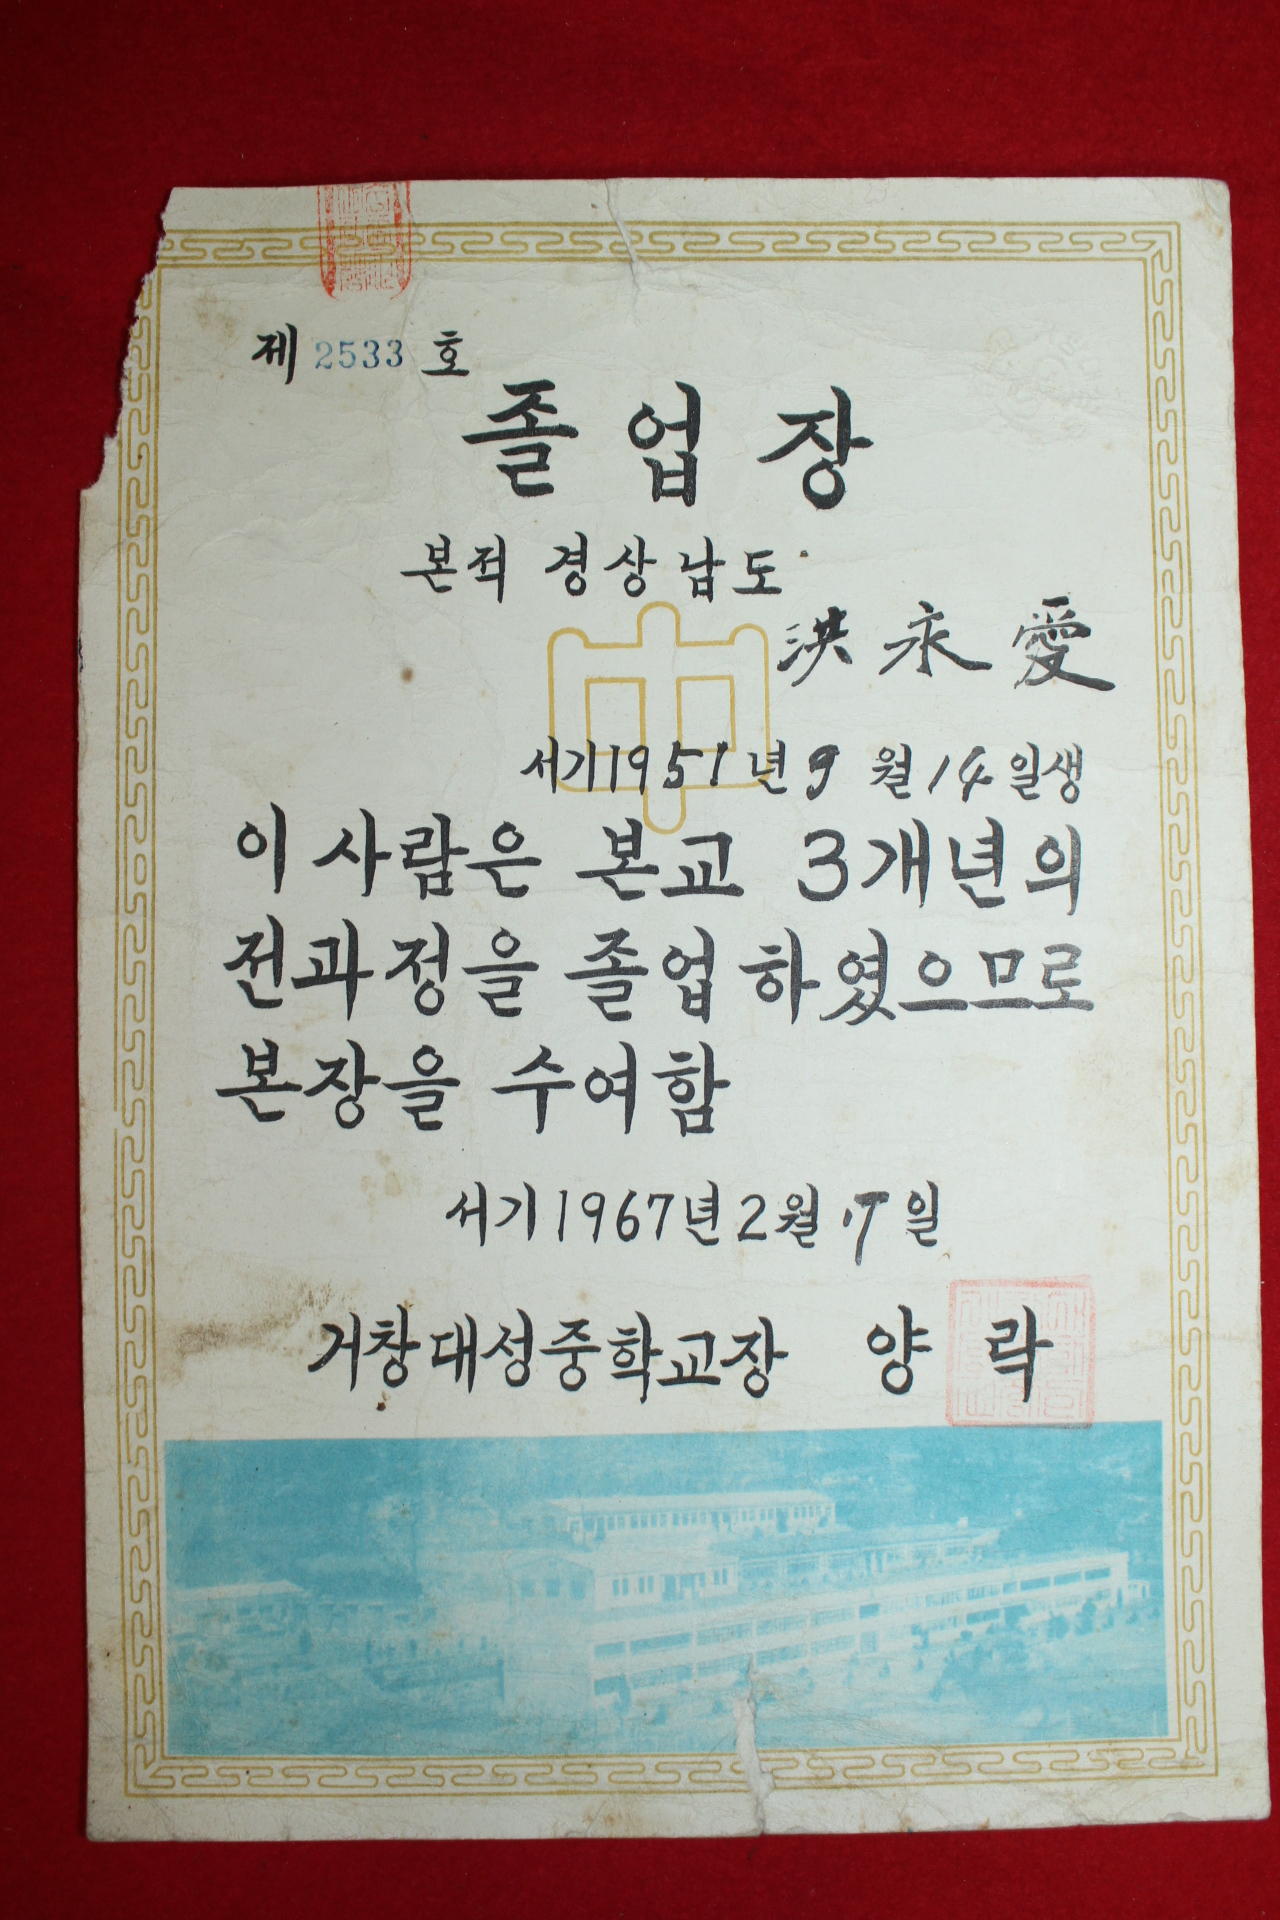 제 2533 호
졸업장
본적 경상남도
洪永愛
서기 1951년 9월 14일생
이 사람은 본교 3개년의
전과정을 졸업하였으므로
본장을 수여함
서기 1967년 2월 17일
거창대성중학교장 양락
中